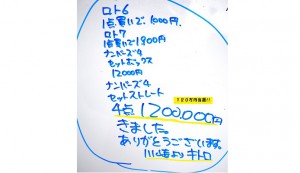 ロト6
1点買いで、1000円。
ロト7
1点買いで1800円
ナンバーズ4
セットボックス
12000円
ナンバーズ4
セットストレート
120万円当選!!
4点1200,000円
きました。
ありがとうございます。
川崎よりキトロ